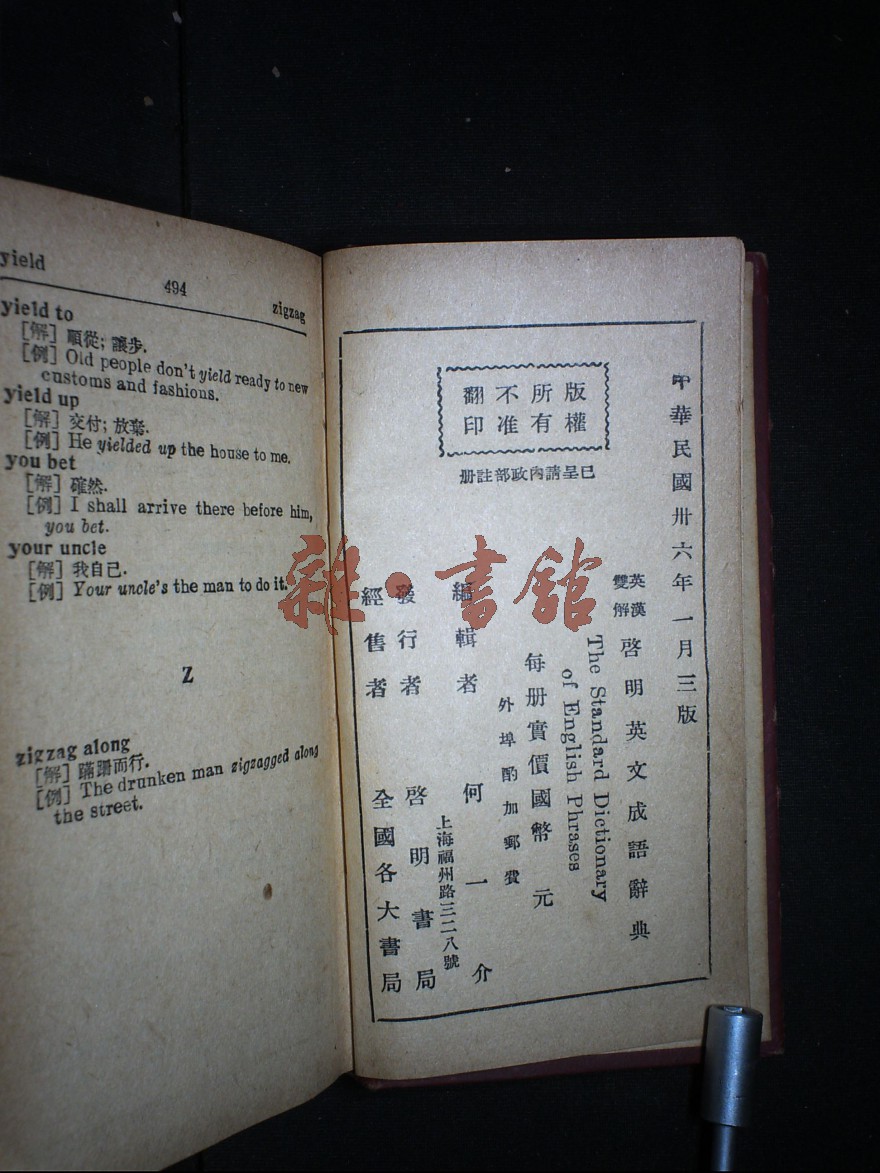 yield
494
zigzag
yield to
[解] 順從; 讓步.
[例] Old people don't yield ready to new
customs and fashions.
yield up
[解] 交付; 放棄.
[例] He yielded up the house to me.
you bet
[解] 確然.
[例] I shall arrive there before him,
you bet.
your uncle
[解] 我自己.
[例] Your uncle's the man to do it.
Z
zigzag along
[解] 蹣跚而行.
[例] The drunken man zigzagged along
the street.
中華民國卅六年一月三版
版權
所有
不准
翻印
已呈請內政部註册
英漢
雙解
啓明英文成語辭典
The Standard Dictionary
of English Phrases
每册實價國幣 元
外埠酌加郵費
編輯者 何一介
上海福州路三二八號
發行者 啓明書局
經售者 全國各大書局
雜·書館